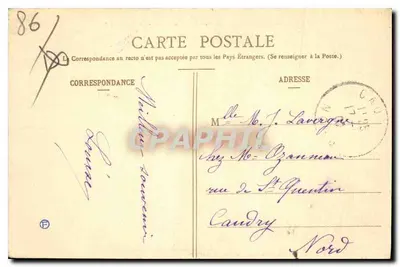 86
CARTE POSTALE
La Correspondance au recto n'est pas acceptée par tous les Pays Étrangers. (Se renseigner à la Poste.)
CORRESPONDANCE
ADRESSE
Meilleur souvenir
Louise
Mlle M. J. Lavergne
chez Mr Ozanneau
rue de St Quentin
Caudry
Nord
CPAPHIL
F